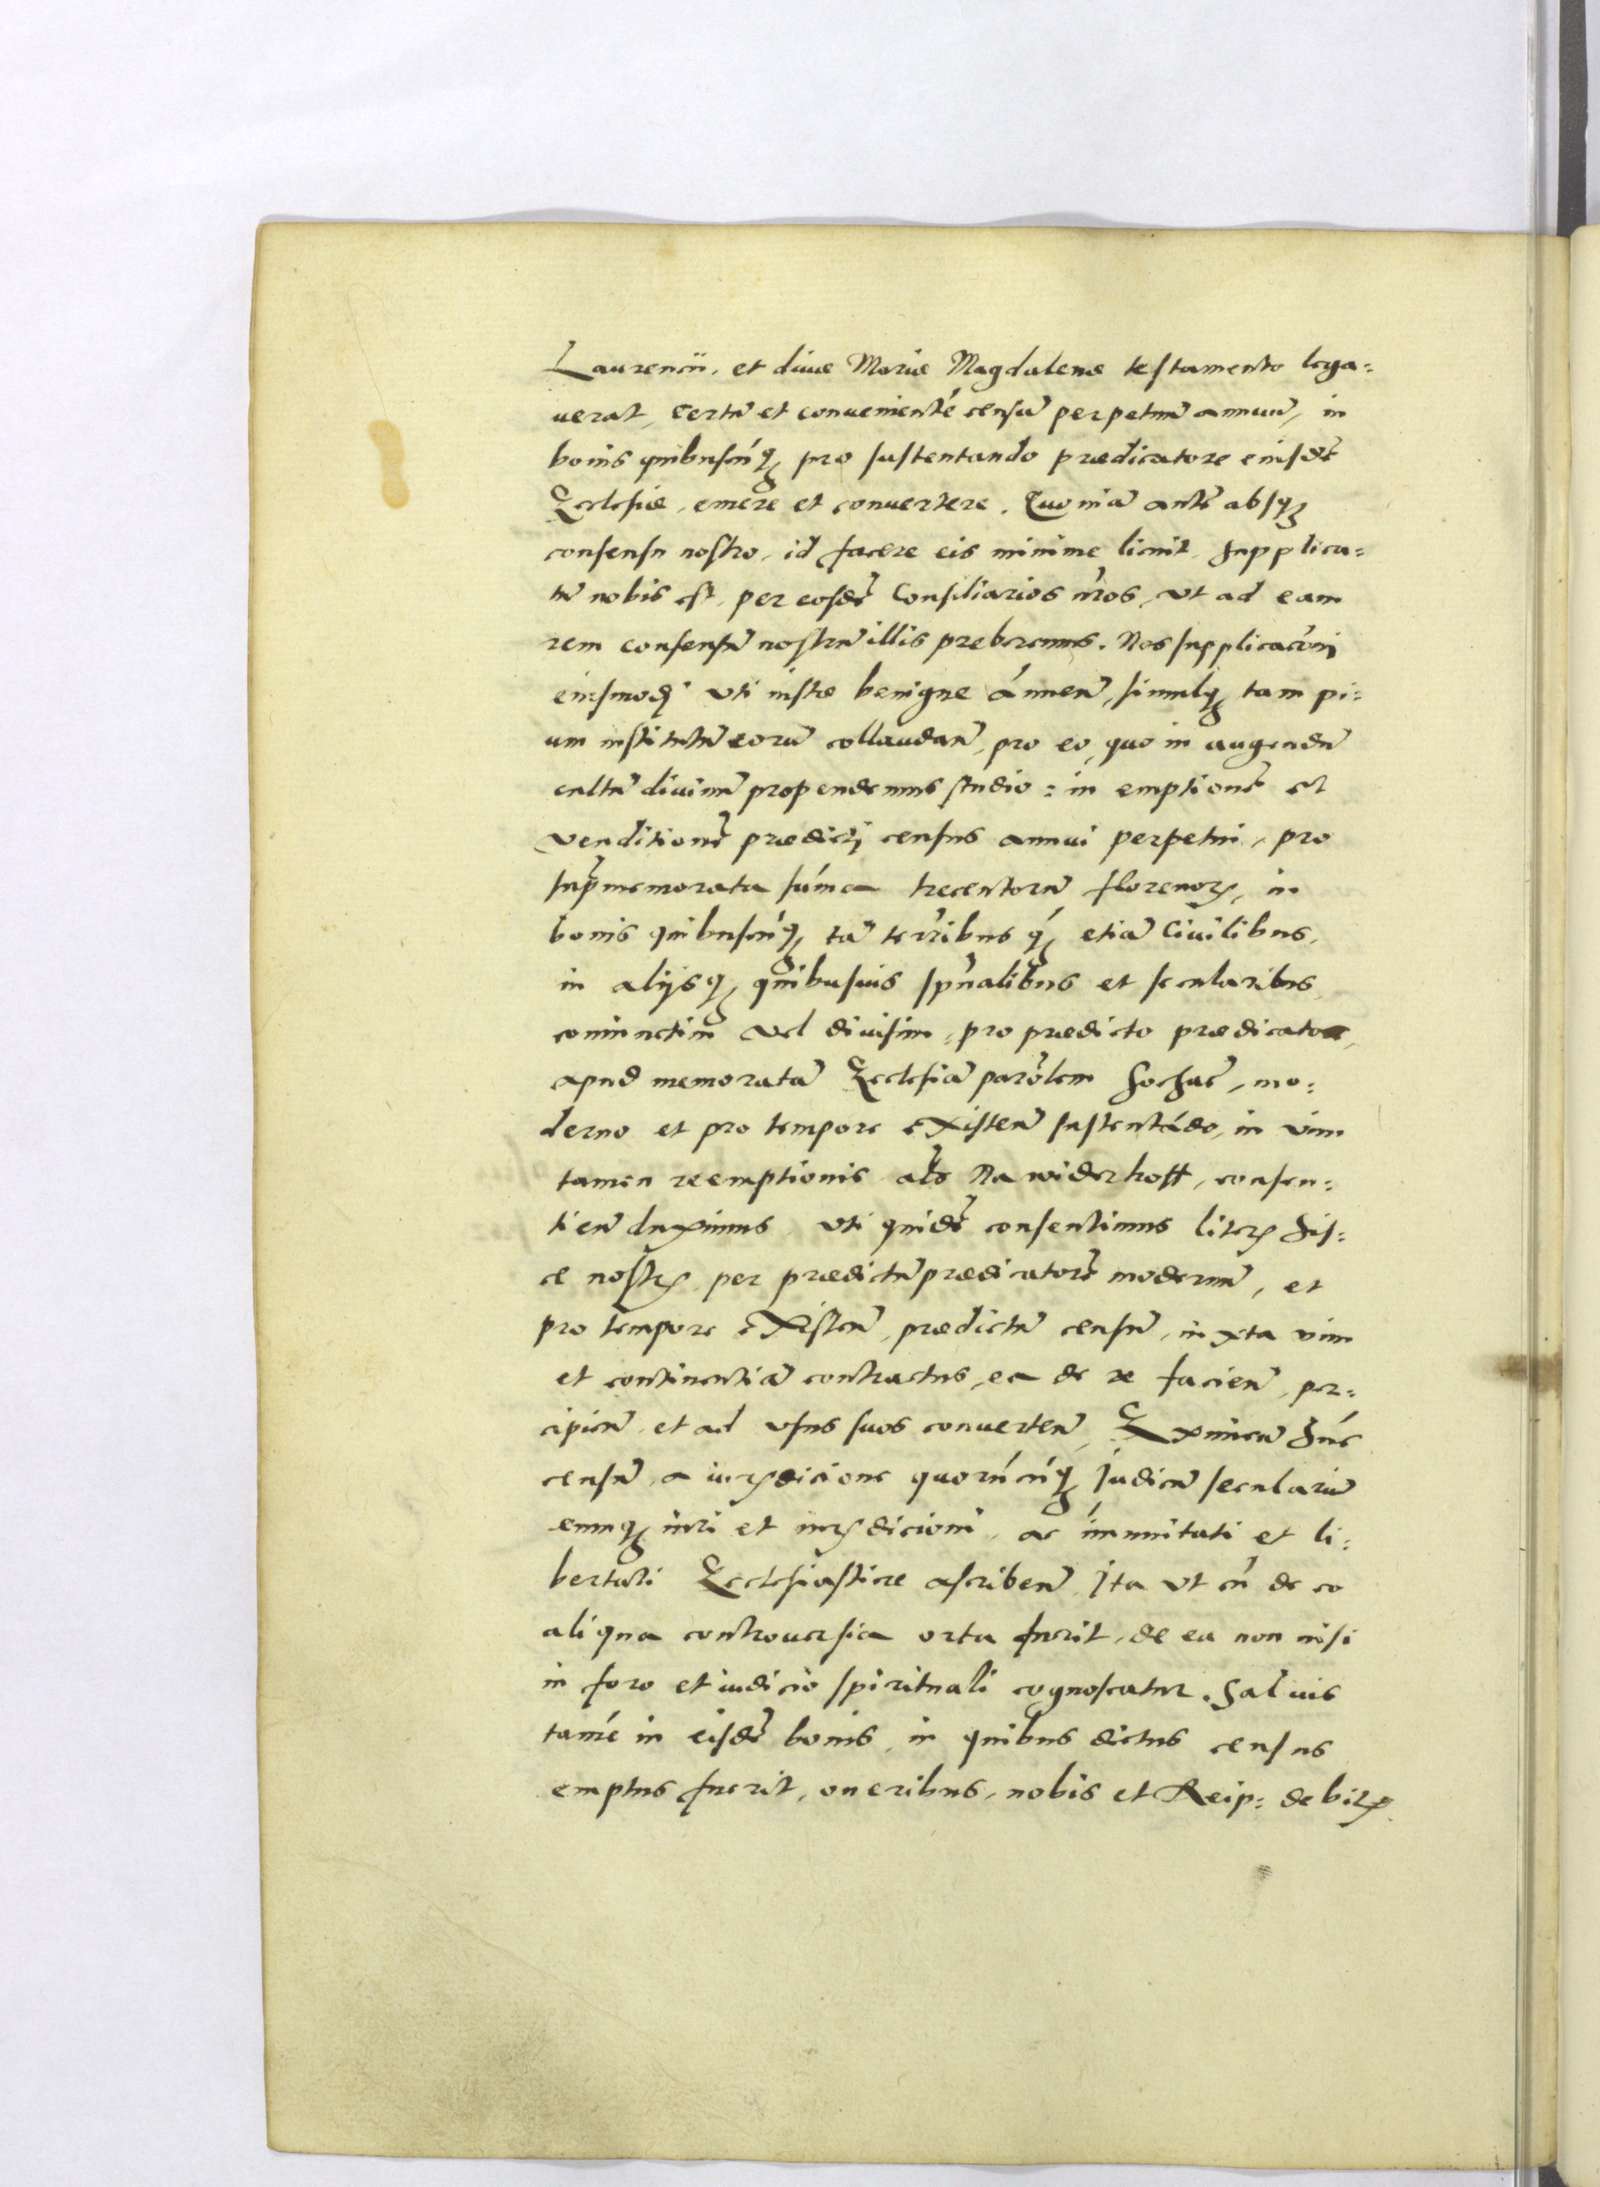 Laurencii, et diuæ Mariæ Magdalenæ testamento lega=
uerat, certũ et conuenientẽ censũ perpetuũ annuũ, in
bonis quibuscũq₃ pro sustentando prædicatore eiusdẽ
Ecclesiæ, emere et conuertere. Quoniã autẽ absq₃
consensu nostro, id facere eis minime licuit, supplica=
tũ nobis est, per eosdẽ Consiliarios nr̃os, vt ad eam
rem consensũ nostrũ illis preberemus. Nos supplicacõni
eiusmodi vti iustæ benigne ãnuen̄, simulq₃ tam pi=
um institutũ eorũ collaudan̄, pro eo, quo in augendũ
cultũ diuinũ propendemus studio: in emptionẽ et
venditionẽ prædicti census annui perpetui, pro
supr̃memorata sũma trecentorũ florenoꝝ, in
bonis quibuscũq₃ tã terr̃ibus q̃ etiã Ciuilibus,
in alijsq₃ quibusuis spũalibus et secularibus
coniunctim vel diuisim, pro prædicto prædicatore,
apud memoratã Ecclesiã parõlem Sochacẽ, mo=
derno et pro tempore existen̄ sustentãdo, in vim
tamen reemptionis al̃s Na widerkoff, consen=
tien̄ duximus vti quidẽ consentimus literꝭ his=
ce nostrꝭ per prædictũ prædicatorẽ modernũ, et
pro tempore existen̄, prædictũ censũ, iuxta vim
et continentiã contractus, ea de re facien̄, per=
cipien̄ et ad vsus suos conuerten̄, Eximien̄ hũc
censũ a iurꝭdicione quorũcũq₃ Judicũ seculariũ
eumq₃ iuri et iurꝭdicioni ac ĩmunitati et li=
bertati Ecclesiasticæ ascriben̄ Ita vt cũ de eo
aliqua controuersia orta fuerit, de ea non nisi
in foro et iudicio spirituali cognoscatur. Saluis
tamẽ in eisdẽ bonis, in quibus dictus census
emptus fuerit, oneribus, nobis et Reip: debitꝭ